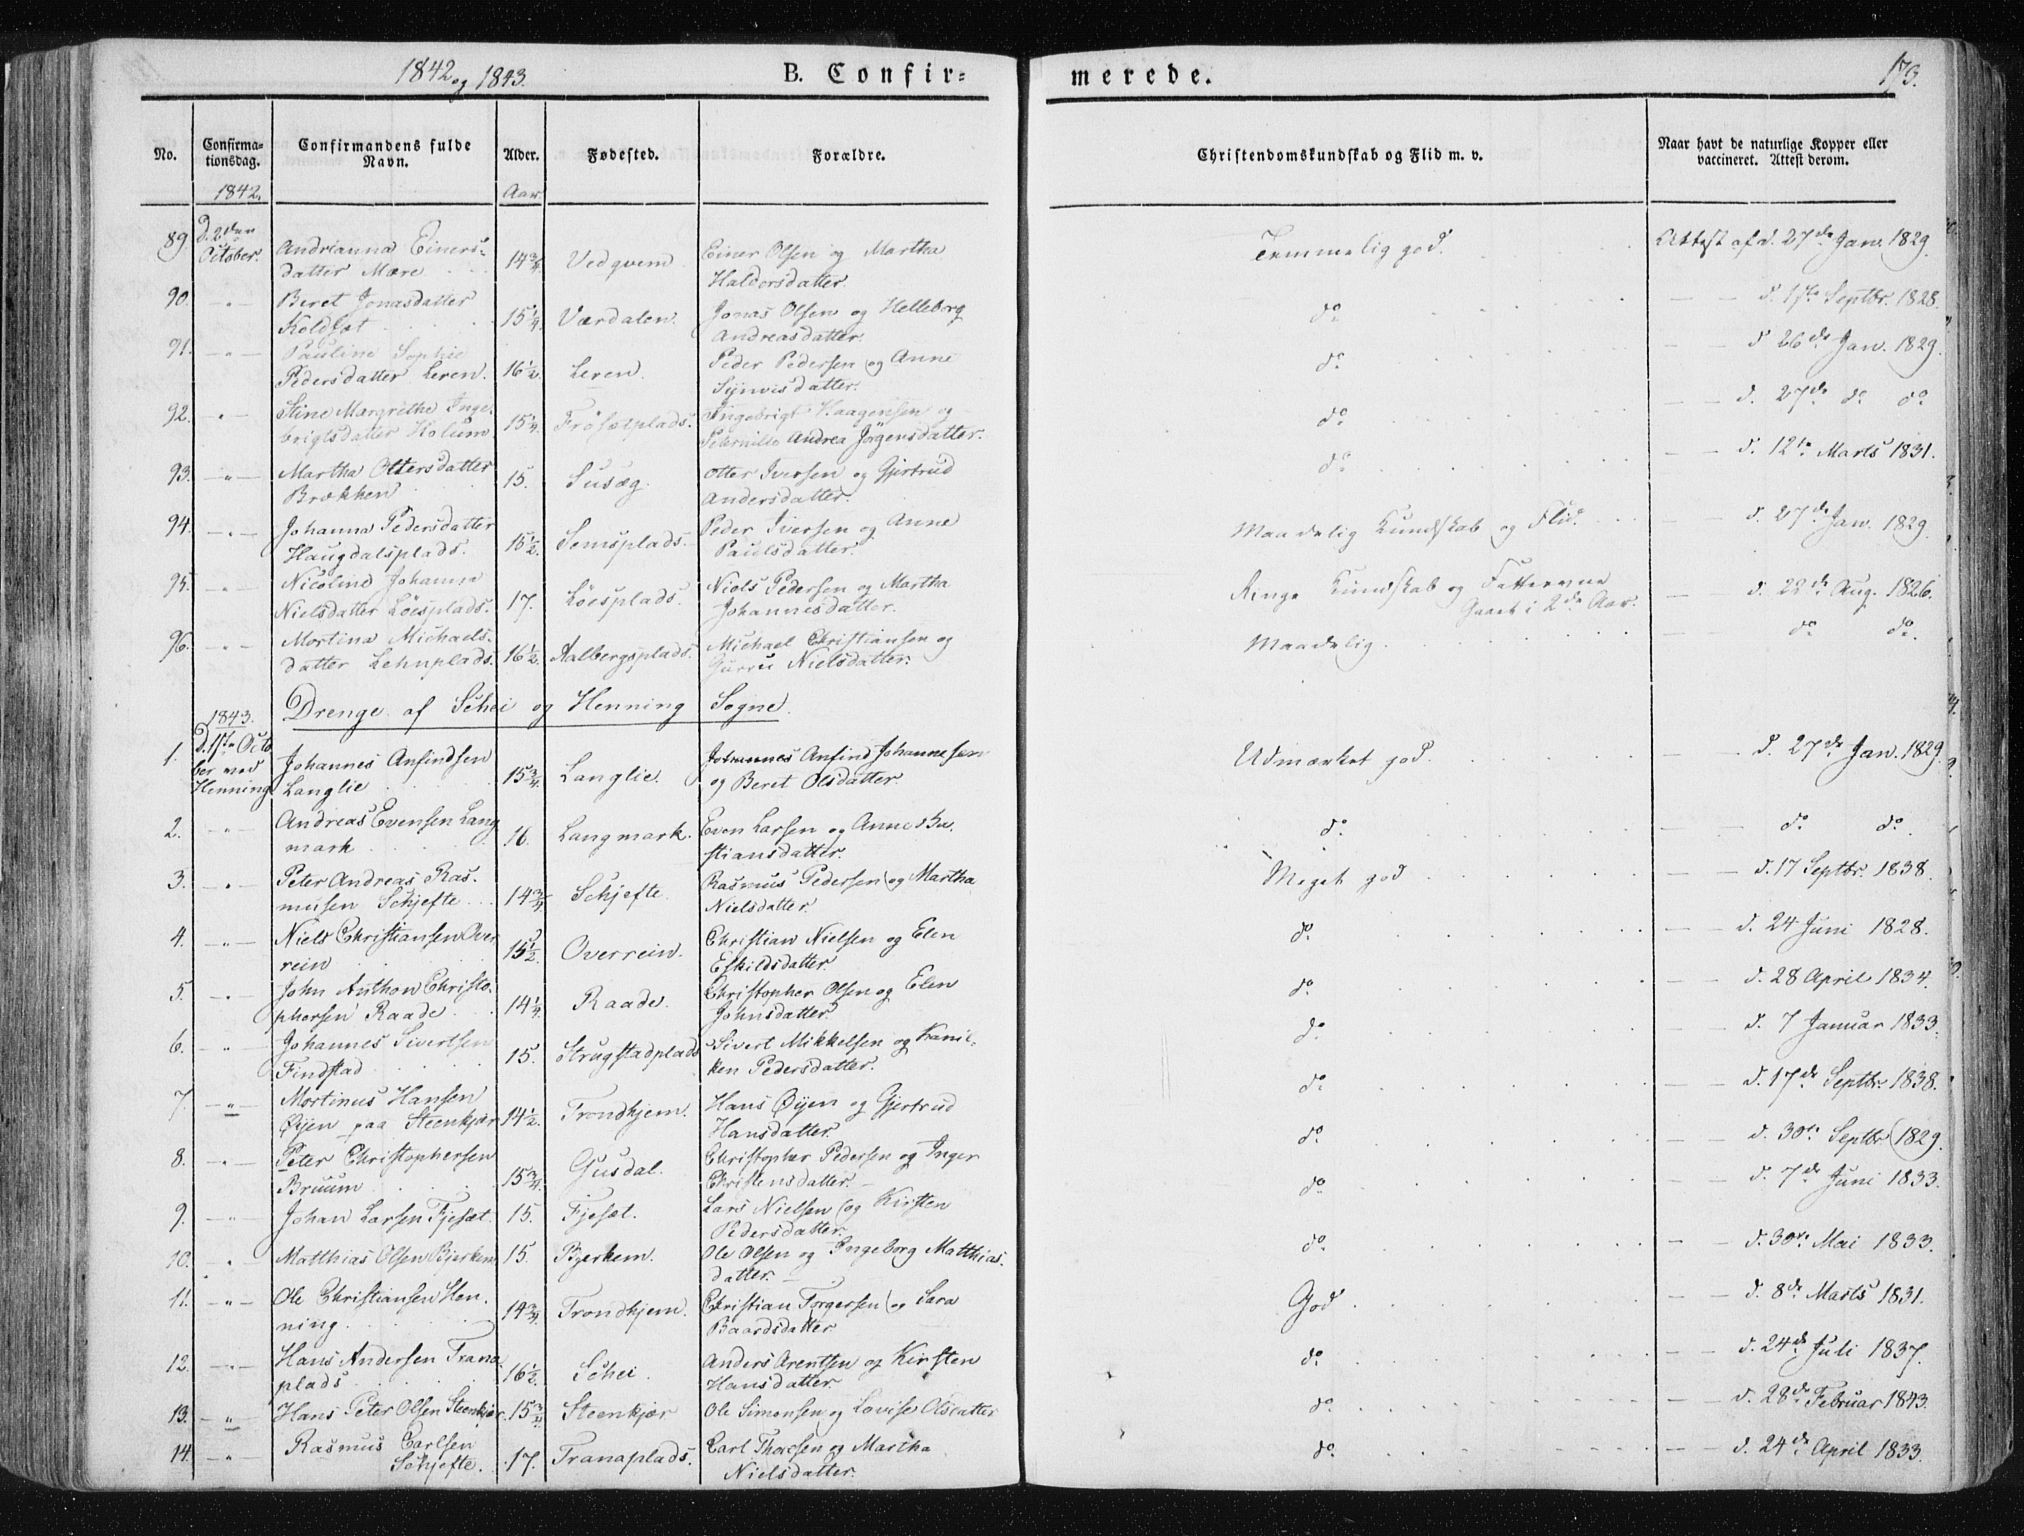 1842 og 1843.
B. Confir=
merede.
173.
No.
Confirma-
tionsdag.
Confirmandens fulde
Navn.
Alder.
Fødested.
Forældre.
Christendomskundskab og Flid m. v.
Naar havt de naturlige Kopper eller
vaccineret. Attest derom.
1842.
Aar
89 D. 2den Andrianna Einers- 14 3/4 Vedqvem Einer Olsen og Martha Temmelig god. Attest af d. 27de Jan. 1829.
October. datter Mære Haldorsdatter.
90. -"- Beret Jonasdatter 15 1/4 Værdalen. Jonas Olsen og Helleborg do. d. 17de Septbr. 1828.
Koldsæt Andreasdatter.
91. -"- Pauline Sophie 16 1/2 Leren. Peder Pedersen og Anne do. d. 26de Jan. 1829.
Pedersdatter Leren. Synvisdatter.
92. -"- Stine Margrethe Inge- 15 3/4 Frösetplads. Ingebrigt Haagensen og do. d. 27de do do
brigtsdatter Holum. Peternille Andrea Jörgensdatter.
93. -"- Martha Ottersdatter 15. Susæg. Otter Iversen og Gjertrud do. d. 12te Marts 1831.
Brækken Andersdatter.
94. -"- Johanna Pedersdatter 15 1/2. Semsplads. Peder Iversen og Anne Maadelig Kundskab og Flid. d. 27de Jan. 1829.
Haugdalsplads. Paulsdatter.
95. -"- Nicoline Johanna 17. Löesplads. Niels Pedersen og Martha Ringe Kundskab og Fatteevne d. 22de Aug. 1826.
Nielsdatter Löesplads. Johannesdatter. Gaaet i 2de Aar.
96. -"- Mortina Michaels- 16 1/2. Aalbergsplads. Michael Christiansen og Maadelig. do. do.
datter Lehnplads. Gurru Nielsdatter.
Drenge af Schei og Henning Sogne.
1843.
1. D. 1ste Octo Johannes Anfindsen 15 3/4. Langlie. Johannes Anfind Johannesen Udmærket god. d. 27de Jan. 1829.
ber ved Henning Langlie og Beret Olsdatter.
2. -"- Andreas Evensen Lang 16. Langmark. Even Larsen og Anne Ba. do. do. do.
mark stiansdatter.
3. -"- Peter Andreas Ras. 14 3/4 Schjefte. Rasmus Pedersen og Martha Meget god d. 17 Septbr. 1838.
musen Schjefte Nielsdatter.
4. -"- Niels Christiansen Over 15 1/2. Overrein. Christian Nielsen og Elen do. d. 24 Juni 1828.
rein Eskildsdatter.
5. -"- John Anthon Christo. 14 1/4 Raade. Christopher Olsen og Elen do. d. 28 April 1834.
phersen Raade. Johnsdatter.
6. -"- Johannes Sivertsen 15. Strugstadplads Sivert Mikkelsen og Kanic- do. d. 7 Januar 1833.
Findstad ken Pedersdatter.
7 -"- Mortinus Hansen 14 1/2. Trondhjem. Hans Öyen og Gjertrud do. d. 17de Septbr. 1838.
Öyen paa Steenkjær Hansdatter.
8. -"- Peter Christophersen 15 3/4. Gusdal. Christopher Pedersen og Inger do. d. 30te Septbr 1829.
Bruum Christensdatter.
9. -"- Johan Larsen Fjeset. 15. Fjeset. Lars Nielsen og Kirsten do. d. 7de Juni 1833.
Pedersdatter.
10. -"- Matthias Olsen Bjerkem 15. Bjerkem. Ole Olsen og Ingeborg Matthias. do. d. 30te Mai 1833.
datter.
11. -"- Ole Christiansen Hen. 14 3/4 Trondhjem. Christian Torgersen og Sara God. d. 8de Marts 1831.
ning. Baardsdatter
12. -"- Hans Andersen Trana 16 1/2. Schei. Anders Arentsen og Kirsten do. d. 24de Juli 1837.
plads Hansdatter.
13. -"- Hans Peter Olsen Steenkjær. 15 3/4. Steenkjær Ole Simonsen og Lovise Olsdatter do. d. 28de Februar 1843.
14. -"- Rasmus Carlsen 17. Tranaplads. Carl Thoresen og Martha do. d. 24de April 1833.
Schjefte. Nielsdatter.